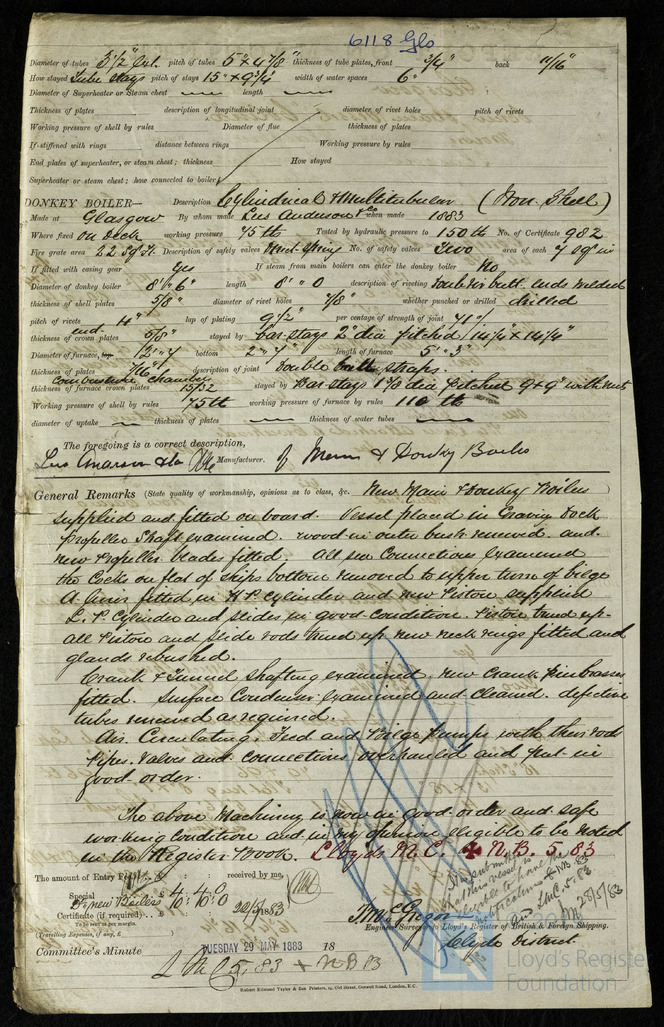 6118 Glo
Diameter of tubes 3 1/2" Ext. pitch of tubes 5" x 4 7/8" thickness of tube plates, front 3/4" back 11/16"
How stayed Tube stays pitch of stays 15" x 9 3/4" width of water spaces 6"
Diameter of Superheater or Steam chest length
Thickness of plates description of longitudinal joint diameter of rivet holes pitch of rivets
Working pressure of shell by rules Diameter of flue thickness of plates
If stiffened with rings distance between rings Working pressure by rules
End plates of superheater, or steam chest; thickness How stayed
Superheater or steam chest; how connected to boiler
DONKEY BOILER— Description Cylindrical & Multitubular (Iron Shell)
Made at Glasgow By whom made Lees Anderson & Co when made 1883
Where fixed on deck working pressure 75 lb Tested by hydraulic pressure to 150 lb No. of Certificate 982
Fire grate area 22 Sq Ft. Description of safety valves Direct Spring No. of safety valves Two area of each 7 sq in
If fitted with easing gear yes If steam from main boilers can enter the donkey boiler No
Diameter of donkey boiler 8' 6" length 8' 0 description of riveting Double riv butt ends welded
thickness of shell plates 5/8" diameter of rivet holes 7/8" whether punched or drilled drilled
pitch of rivets 4" lap of plating 9 1/2" per centage of strength of joint
thickness of end crown plates 5/8" stayed by bar stays 2" dia pitched 14 1/4 x 14 1/4"
Diameter of furnace, top bottom 2' 7" length of furnace 5' 3"
thickness of plates 7/16" description of joint Double butt straps
Combustion Chamber
thickness of furnace crown plates 15/32 stayed by Bar stays dia pitched 9 x 9" with nuts
Working pressure of shell by rules 75 lb working pressure of furnace by rules 110 lb
diameter of uptake thickness of plates thickness of water tubes
The foregoing is a correct description,
Lees Anderson & Co Manufacturer. of Main & Donkey Boiler
General Remarks (State quality of workmanship, opinions as to class, &c. New Main & Donkey Boilers
supplied and fitted on board. Vessel placed in Graving Dock
Propeller Shaft examined. wood in outer bush renewed. and
new Propeller blades fitted. All sea Connections examined
the Cocks on flat of ships bottom removed to upper turn of bilge
A liner fitted in H P Cylinder and new Piston supplied
L. P. Cylinder and slides in good condition. Piston trued up.
all Piston and slide rods trued up new neck rings fitted and
glands rebushed.
Crank & Tunnel shafting examined, new Crank pin brasses
fitted. Surface Condenser examined and cleaned. defective
tubes renewed as required.
Air. Circulating, Feed and Bilge Pumps with their rods
Pipes. Valves and connections overhauled and put in
good order.
The above Machinery is now in good order and safe
working condition and in my opinion eligible to be noted
in the Register Book. Lloyds M. C. ✠ N.B. 5.83
The amount of Entry Fee £ received by me,
Special £ 4 : 4 : 0
Do new Boilers
Certificate (if required) £ 22/5/1883
To be sent as per margin.
(Travelling Expenses, if any, £
It is submitted
that this vessel is
eligible to have the
notification ✠ NB 83
and LMC. 5.83
25/5/83
J McGregor
Engineer Surveyor to Lloyd's Register of British & Foreign Shipping.
Clyde District
Committee's Minute TUESDAY 29 MAY 1883 18
L M C 5,83 + NB 83
Robert Edmund Taylor & Son Printers, 19, Old Street, Goswell Road, London, E.C.
Lloyd's Register
Foundation